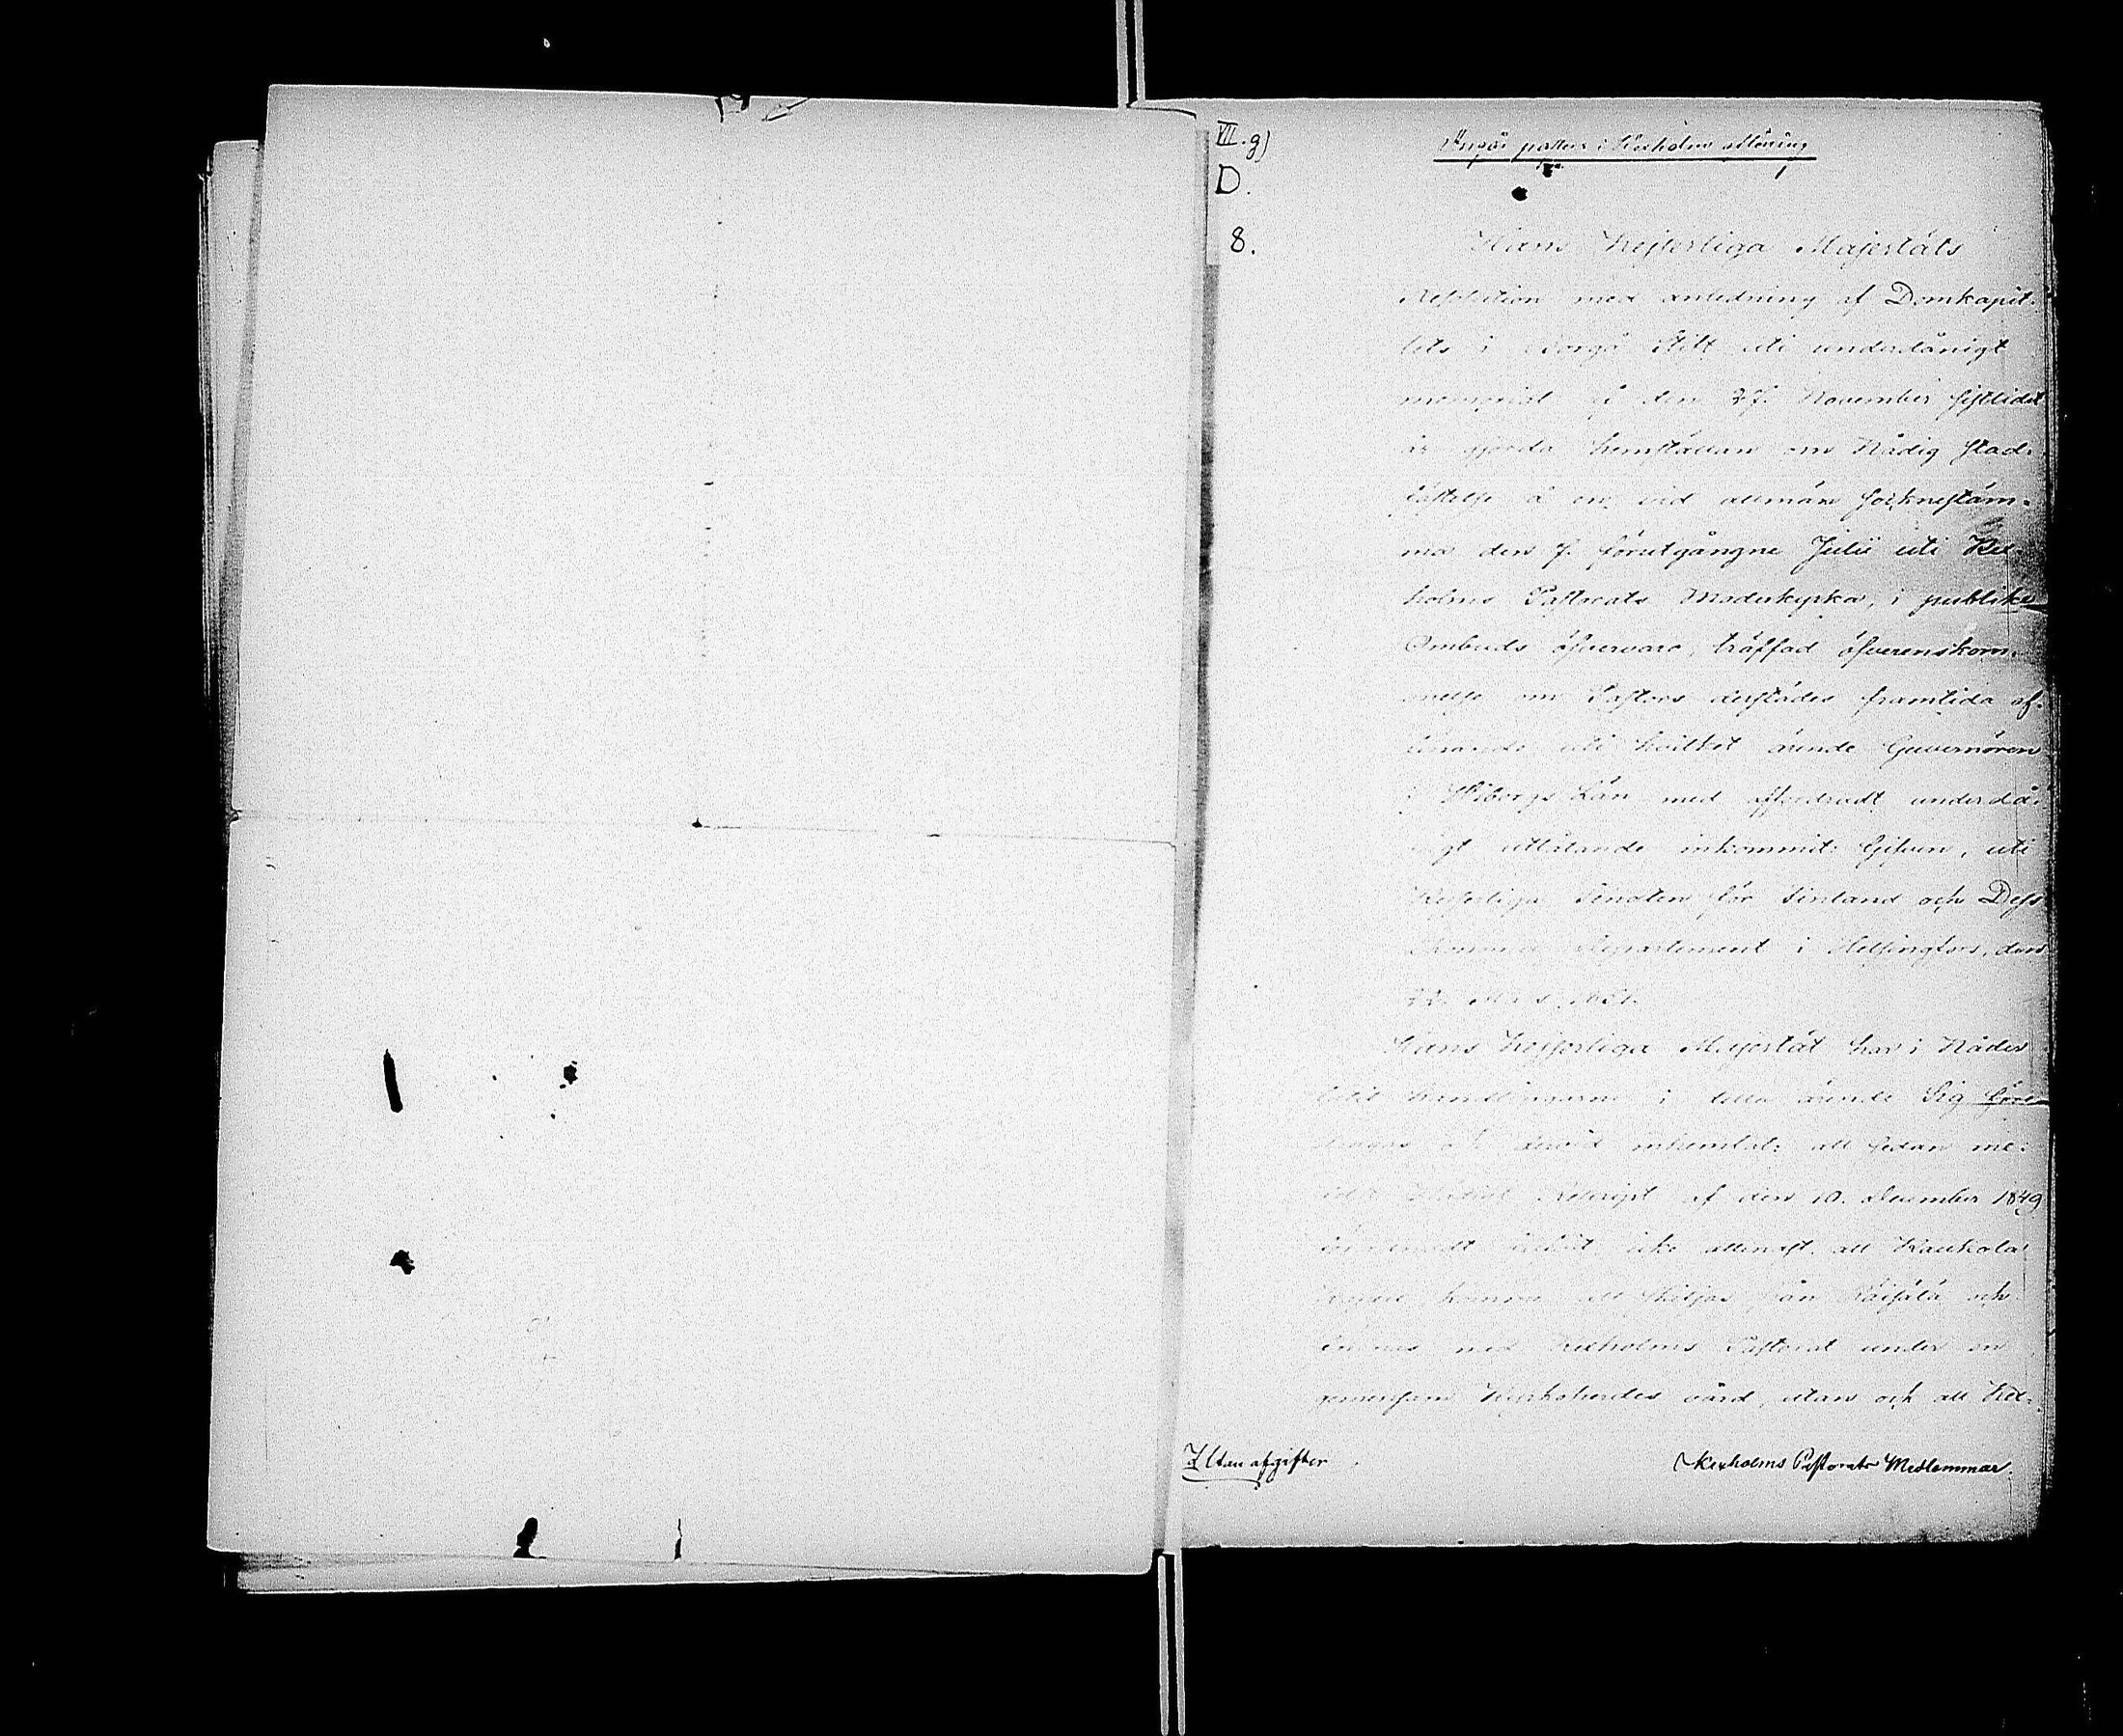 VII. g)
D.
8.
Angår pastors i Kexholm aflöning
Hans Kejserliga Majestäts
Resolution med anledning af Domkapit-
lets i Borgå Stift uti underdånigt
memorial af den 27. November sistlidet
år gjorda hemställan om Nådig stad-
fästelse å en, vid allmän socknestäm-
ma den 7. förutgångne Julii uti Kex-
holms Pastorats Moderkyrka, i publike
Ombuds öfvervaro, träffad öfverenskom-
melse om Pastors derstädes framtida af-
lönande uti hvilket ärende Guvernören
i Wiborgs Län med affordradt underdå-
nigt utlåtande inkommit: Gifven, uti
Kejserliga Senaten för Finland och Dess
Ekonomie Departement i Helsingfors, den
Hans Kejserliga Majestät har i Nåder
låtit handlingarne i detta ärende Sig före-
dragas och dervid inhemtat: att sedan me-
Rescript af den 10. December 1849
icke allenast att Kaukola
kapell komme att skiljas från Räisälä och
förenas med Kexholms Pastorat under en
gemensam Kyrkoherdes vård, utan och att Kex-
Utan afgifter
Kexholms Pastorats Medlemmar.